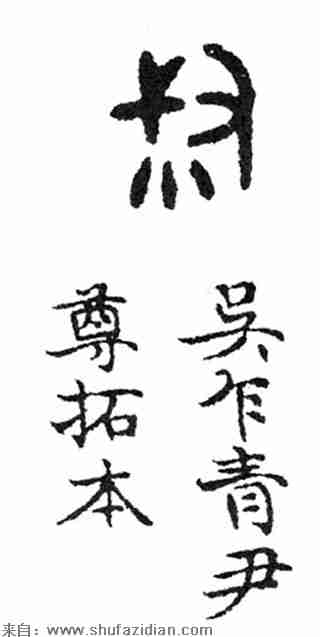 吳乍青尹
尊拓本
来自：www.shufazidian.com